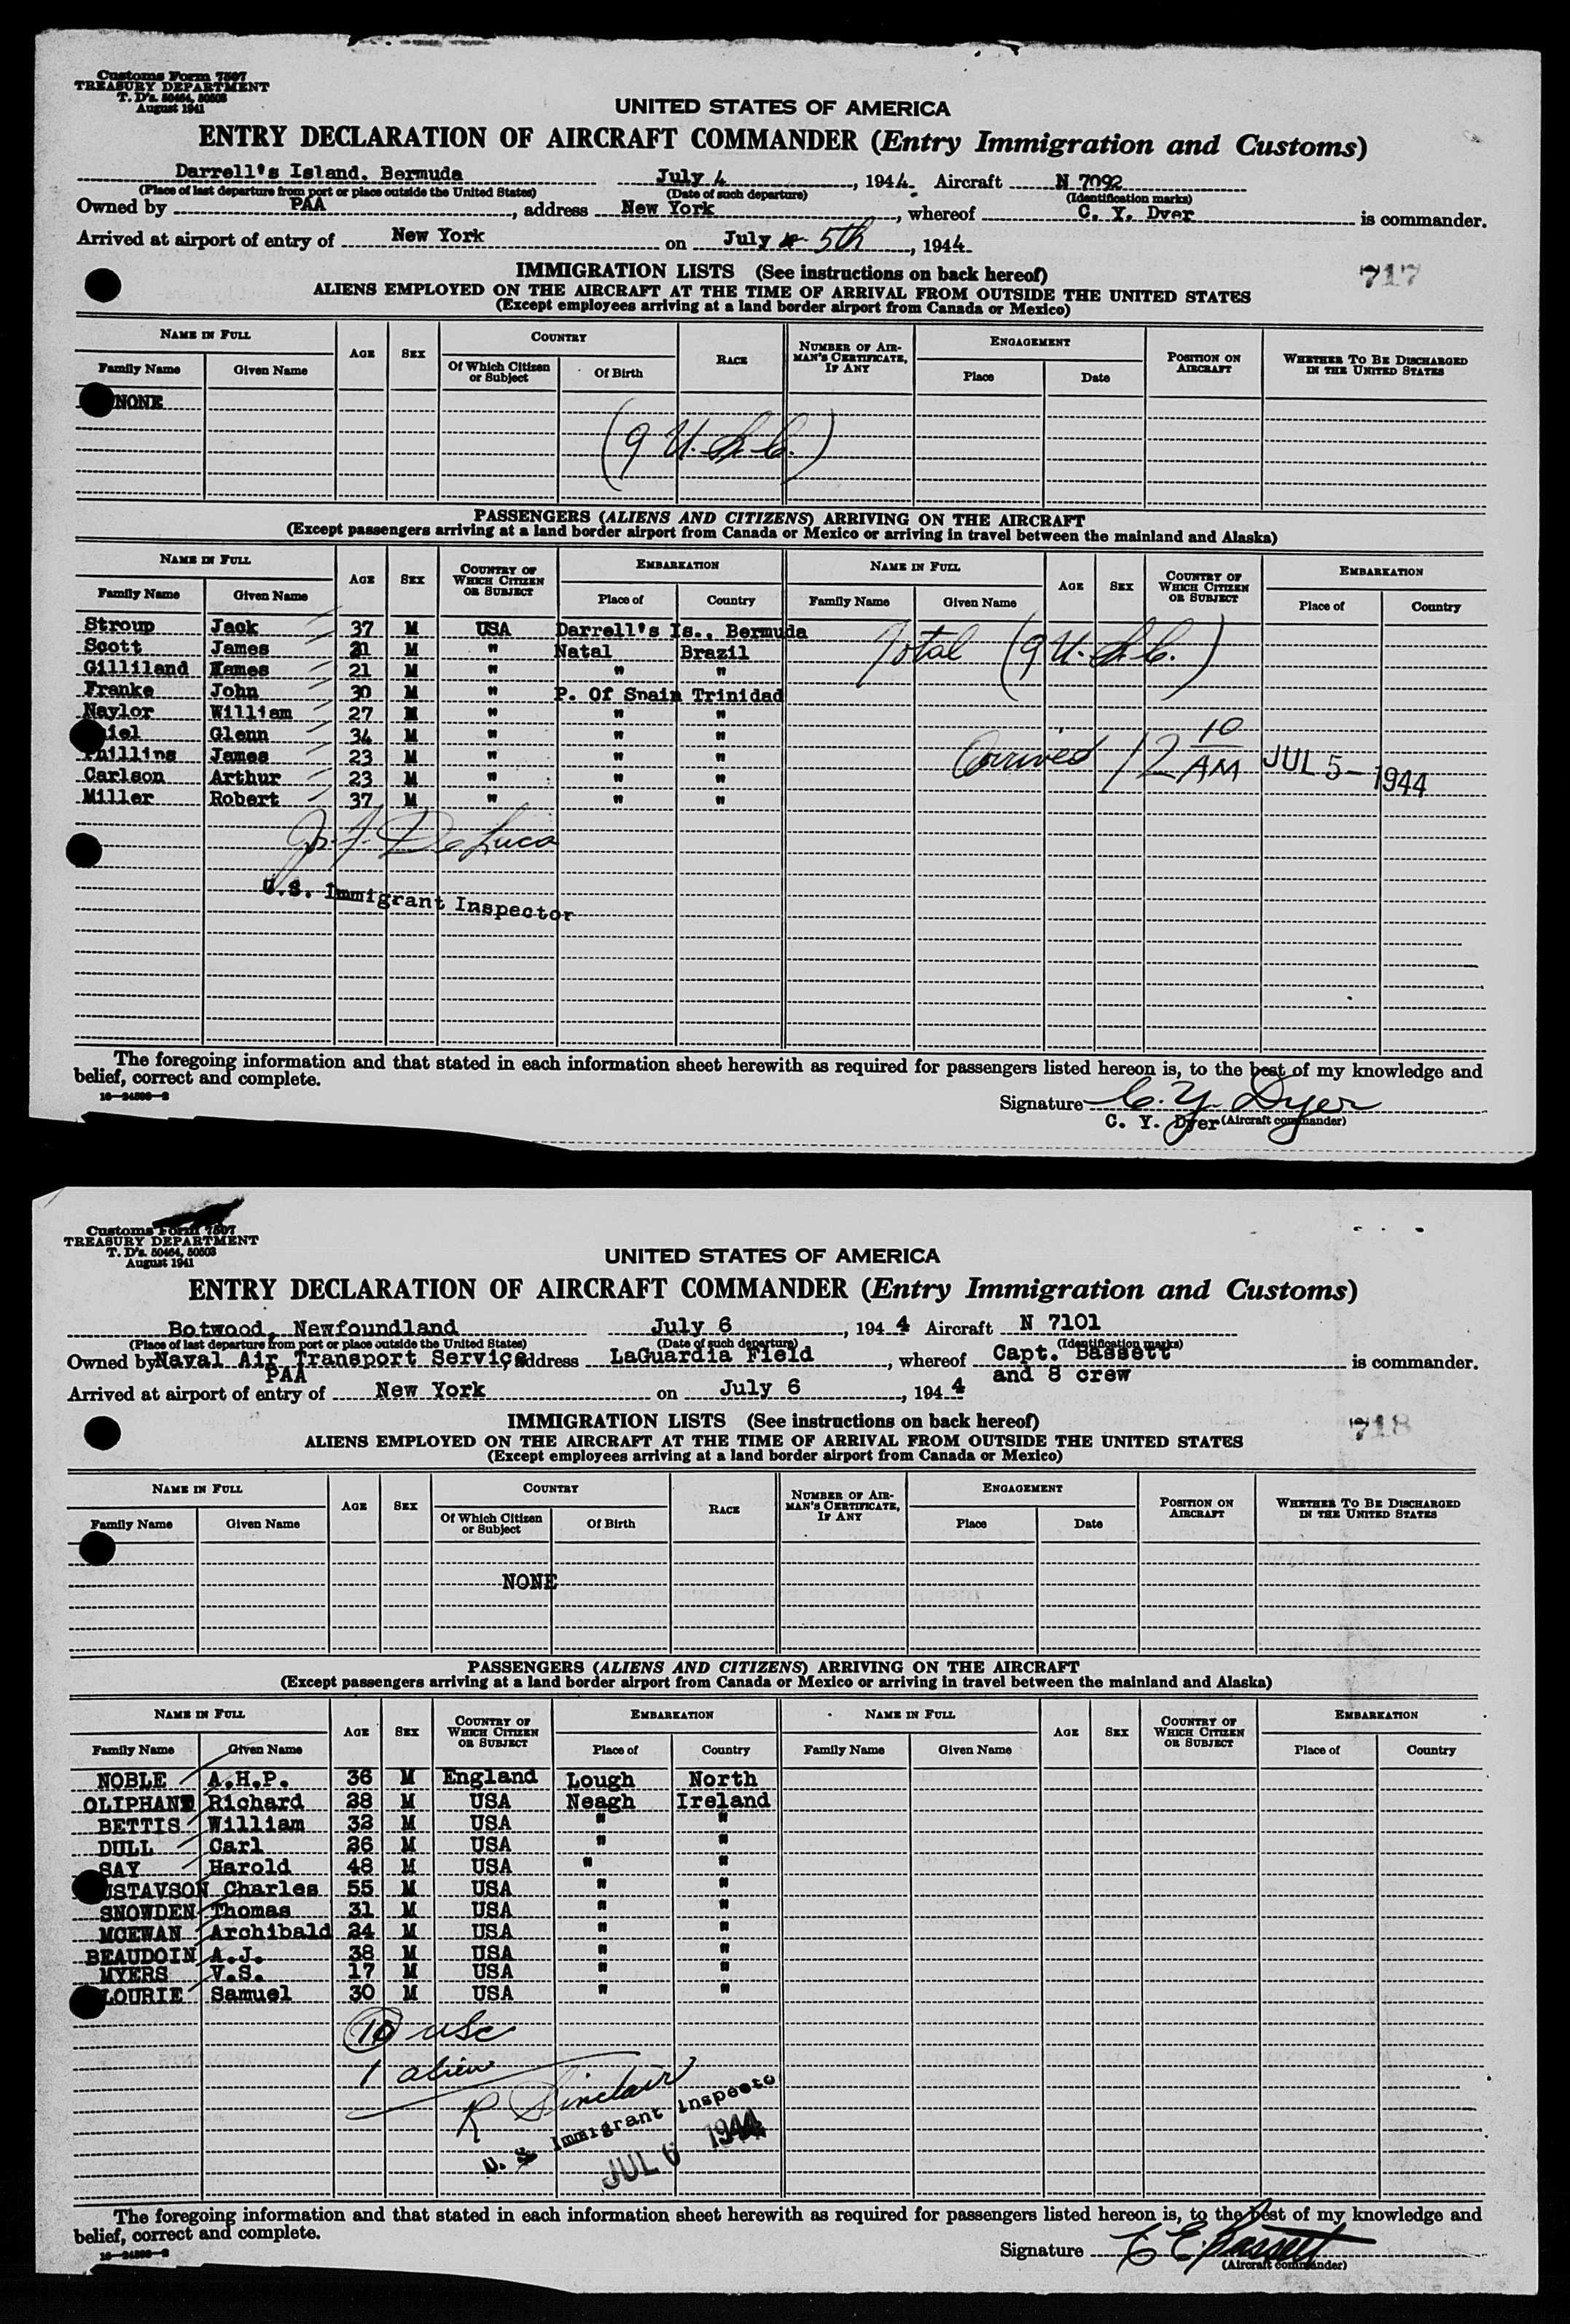 Customs Form 7507
TREASURY DEPARTMENT
T. D's. 50464, 50503
August 1941
UNITED STATES OF AMERICA
ENTRY DECLARATION OF AIRCRAFT COMMANDER (Entry Immigration and Customs)
Darrell's Island. Bermuda July 4, 1944. Aircraft N 7092
(Place of last departure from port or place outside the United States) (Date of such departure) (Identification marks)
Owned by PAA, address New York, whereof C. Y. Dyer is commander.
Arrived at airport of entry of New York on July 5th, 1944.
717
IMMIGRATION LISTS (See instructions on back hereof)
ALIENS EMPLOYED ON THE AIRCRAFT AT THE TIME OF ARRIVAL FROM OUTSIDE THE UNITED STATES
(Except employees arriving at a land border airport from Canada or Mexico)
NAME IN FULL AGE SEX COUNTRY RACE NUMBER OF AIRMAN'S CERTIFICATE, IF ANY ENGAGEMENT POSITION ON AIRCRAFT WHETHER TO BE DISCHARGED IN THE UNITED STATES
Family Name Given Name Of Which Citizen or Subject Of Birth Place Date
NONE
(9 U.S.C.)
PASSENGERS (ALIENS AND CITIZENS) ARRIVING ON THE AIRCRAFT
(Except passengers arriving at a land border airport from Canada or Mexico or arriving in travel between the mainland and Alaska)
NAME IN FULL AGE SEX COUNTRY OF WHICH CITIZEN OR SUBJECT EMBARKATION NAME IN FULL AGE SEX COUNTRY OF WHICH CITIZEN OR SUBJECT EMBARKATION
Family Name Given Name Place of Country Family Name Given Name Place of Country
Stroup Jack 37 M USA Darrell's Is., Bermuda
Scott James 21 M " Natal Brazil Total (9 U.S.C.)
Gilliland James 21 M " " "
Franke John 30 M " P. Of Spain Trinidad
Naylor William 27 M " " "
iel Glenn 34 M " " "
Phillips James 23 M " " " Arrived 12 10 AM JUL 5- 1944
Carlson Arthur 23 M " " "
Miller Robert 37 M " " "
J. De Luca
U.S. Immigrant Inspector
The foregoing information and that stated in each information sheet herewith as required for passengers listed hereon is, to the best of my knowledge and
belief, correct and complete.
16—24590—2
Signature C. Y. Dyer
C. Y. Dyer (Aircraft commander)
Customs Form 7507
TREASURY DEPARTMENT
T. D's. 50464, 50503
August 1941
UNITED STATES OF AMERICA
ENTRY DECLARATION OF AIRCRAFT COMMANDER (Entry Immigration and Customs)
Botwood, Newfoundland July 6, 1944 Aircraft N 7101
(Place of last departure from port or place outside the United States) (Date of such departure) (Identification marks)
Owned by Naval Air Transport Service address LaGuardia Field, whereof Capt. Bassett is commander.
PAA and 8 crew
Arrived at airport of entry of New York on July 6, 1944
718
IMMIGRATION LISTS (See instructions on back hereof)
ALIENS EMPLOYED ON THE AIRCRAFT AT THE TIME OF ARRIVAL FROM OUTSIDE THE UNITED STATES
(Except employees arriving at a land border airport from Canada or Mexico)
NAME IN FULL AGE SEX COUNTRY RACE NUMBER OF AIRMAN'S CERTIFICATE, IF ANY ENGAGEMENT POSITION ON AIRCRAFT WHETHER TO BE DISCHARGED IN THE UNITED STATES
Family Name Given Name Of Which Citizen or Subject Of Birth Place Date
NONE
PASSENGERS (ALIENS AND CITIZENS) ARRIVING ON THE AIRCRAFT
(Except passengers arriving at a land border airport from Canada or Mexico or arriving in travel between the mainland and Alaska)
NAME IN FULL AGE SEX COUNTRY OF WHICH CITIZEN OR SUBJECT EMBARKATION NAME IN FULL AGE SEX COUNTRY OF WHICH CITIZEN OR SUBJECT EMBARKATION
Family Name Given Name Place of Country Family Name Given Name Place of Country
NOBLE A.H.P. 36 M England Lough North
OLIPHANT Richard 28 M USA Neagh Ireland
BETTIS William 32 M USA " "
DULL Carl 26 M USA " "
SAY Harold 48 M USA " "
USTAVSON Charles 55 M USA " "
SNOWDEN Thomas 31 M USA " "
MCEWAN Archibald 24 M USA " "
BEAUDOIN A.J. 38 M USA " "
MYERS V.S. 17 M USA " "
LOURIE Samuel 30 M USA " "
10 usc
1 alien
R Sinclair
U. S. Immigrant Inspecto
JUL 6 1944
The foregoing information and that stated in each information sheet herewith as required for passengers listed hereon is, to the best of my knowledge and
belief, correct and complete.
16—24590—2
Signature C E Bassett
(Aircraft commander)